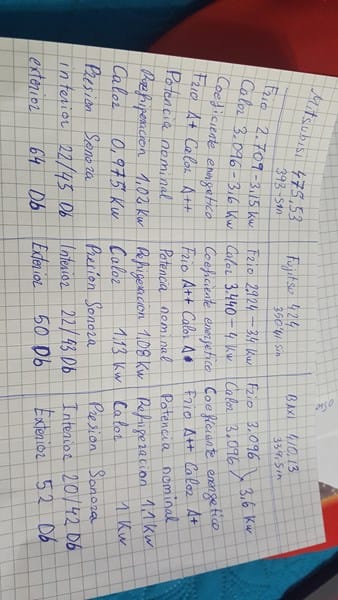 Mitsubisi 475,53
393-sin
Frio 2.709-3.15 Kw
Calor 3.096-3.6 Kw
Coeficiente energetico
Frio A+ Calor A++
Potencia nominal
Refrigeracion 1,02 Kw
Calor 0,975 Kw
Presion Sonora
interior 22/45 Db
exterior 64 Db
Fujitsu 424
350,41 Sin
Frio 2924-34 Kw
Calor 3.440-4 Kw
Coeficiente energetico
Frio A++ Calor A+
Potencia nominal
Refrigeracion 1,08 Kw
Calor 1,13 Kw
Presion Sonora
Interior 22/43 Db
Exterior 50 Db
BAXI 410.13
Sin
Frio 3.096
Calor 3.096 } 3.6 Kw
Coeficiente energetico
Frio A++ Calor A+
Potencia nominal
Refrigeracion 1,1 Kw
Calor 1 Kw
Presion Sonora
Interior 20/42 Db
Exterior 52 Db